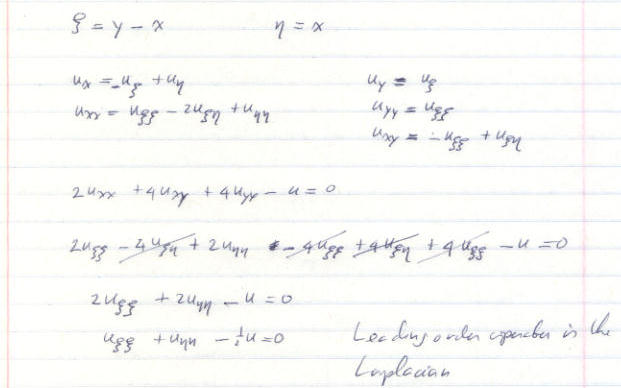 ξ = y − x    η = x
u_x = −u_ξ + u_η    u_y = u_ξ
u_xx = u_ξξ − 2u_ξη + u_ηη    u_yy = u_ξξ
u_xy = −u_ξξ + u_ξη
2u_xx + 4u_xy + 4u_yy − u = 0
2u_ξξ − 4u_ξη + 2u_ηη − 4u_ξξ + 4u_ξη + 4u_ξξ − u = 0
2u_ξξ + 2u_ηη − u = 0
u_ξξ + u_ηη − ½u = 0    Leading order operator is the
Laplacian